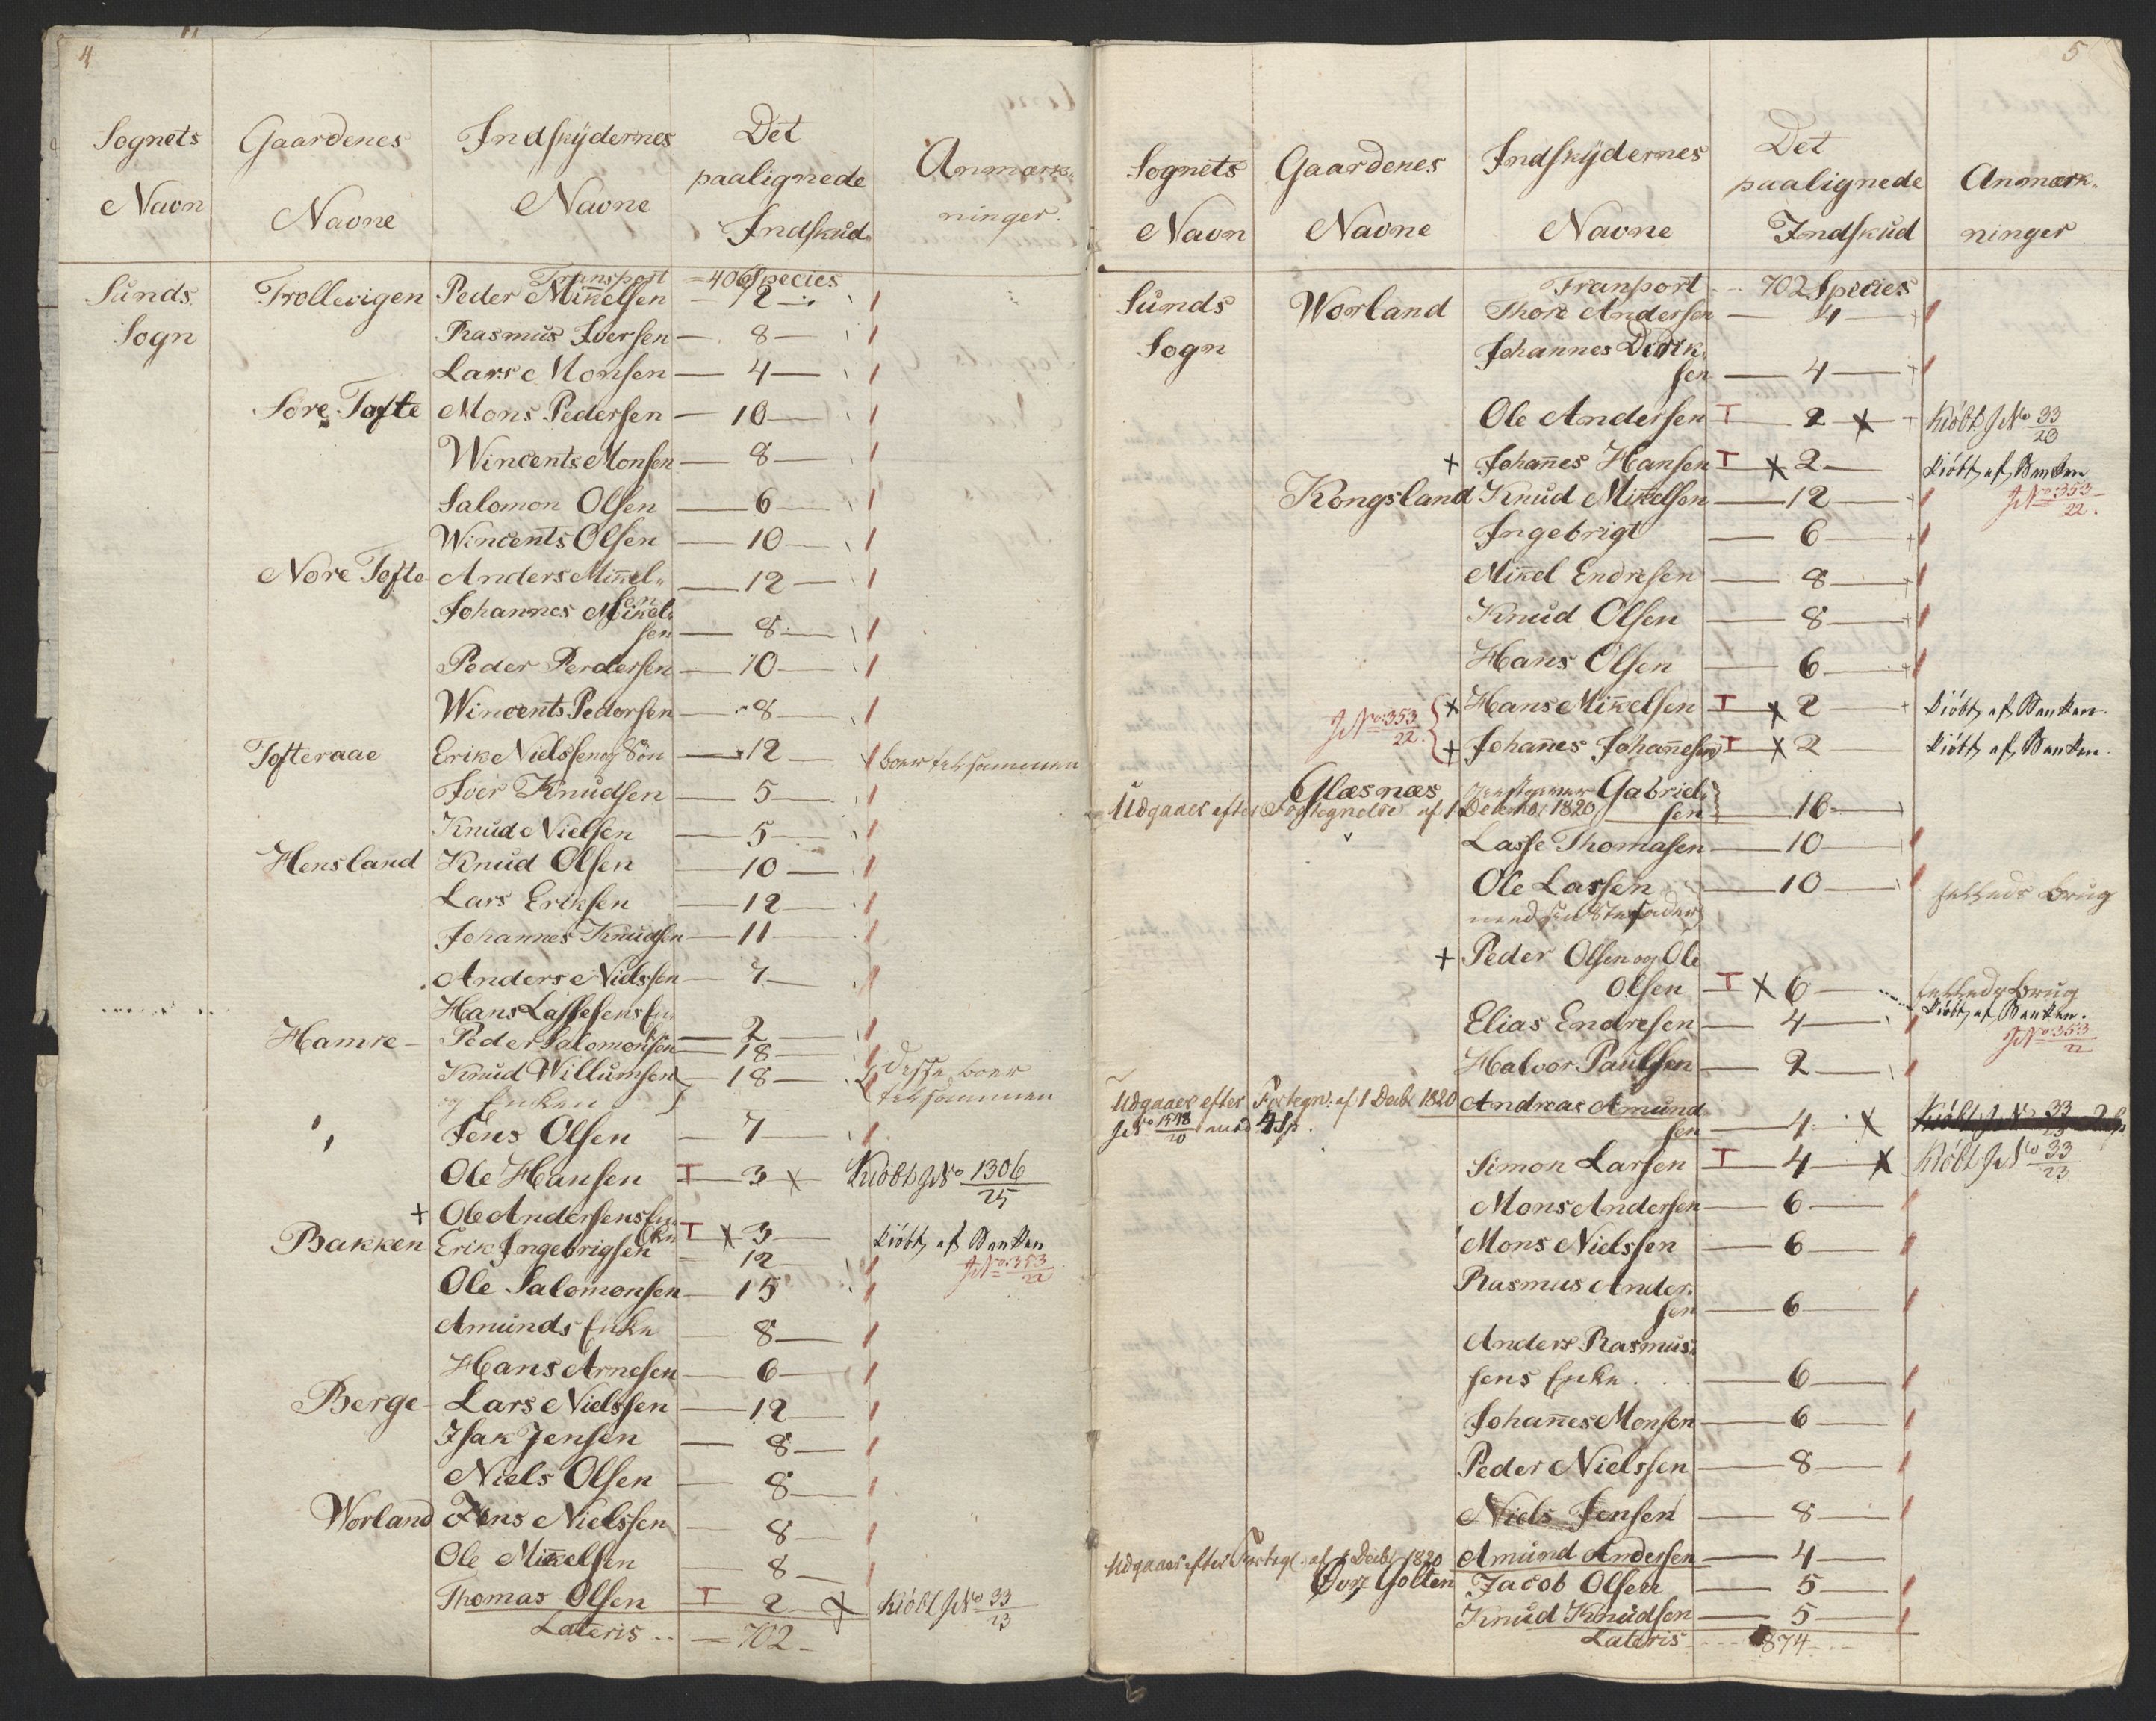 4
Sognets Navn | Gaardenes Navne | Indskÿdernes Navne | Det paalignede Indskud | Anmærkninger.
Transport = 406 Species
Sunds Sogn | Trollevigen | Peder Mikkelsen — 12 —
Rasmus Iversen — 8 —
Lars Monsen — 4 —
Søre Tofte | Mons Pedersen — 10 —
Wincents Monsen — 8 —
Salomon Olsen — 6 —
Wincents Olsen — 10 —
Nore Tofte | Anders Mikkelsen — 12 —
Johannes Mikkelsen — 8 —
Peder Perdersen — 10 —
Wincents Pedersen — 8 —
Tofteraae | Erik Nielssen og Søn — 12 — | boer tilsammen
Iver Knudsen — 5 —
Knud Nielsen — 5 —
Hensland | Knud Olsen — 10 —
Lars Eriksen — 12 —
Johannes Knudsen — 11 —
Anders Nielssen — 7 —
Hans Lassesens Enke — 2 —
Hamre | Peder Salomonsen — 18 —
Knud Willumsen og Enken — 18 — | disse boer tilsammen
Jens Olsen — 7 —
Ole Hansen T — 3 × | Kiøbt J No 1306/25
+ Ole Andersens Enke T × 3 — | kiöbt af Banken
Bakken | Erik Ingebrigsen — 12 — | J No: 353/22
Ole Salomonsen — 15
Amunds Enke — 8 —
Hans Arnesen — 6 —
Berge | Lars Nielssen — 12 —
Isak Jensen — 8 —
Niels Olsen — 8 —
Worland | Jens Nielssen — 8 —
Ole Mikkelsen — 8 —
Thomas Olsen T 2 × | Kiöbt J No 33/23
Lateris = 702
5
Sognets Navn | Gaardenes Navne | Indskÿdernes Navne | Det paalignede Indskud | Anmærkninger
Tranport 702 Species
Sunds Sogn | Worland | Thore Andersen — 4 —
Johannes Didriksen — 4 —
Ole Andersen T — 2 × | Kiöbt J No 33/23
+ Johañes Hansen T × 2 — | kiöbt af Banken
Kongsland | Knud Mikkelsen — 12 — | J No: 353/22.
Ingebrigt — 6 —
Mikkel Endresen — 8 —
Knud Olsen — 8 —
Hans Olsen — 6 —
J No: 353/22. + Hans Mikkelsen T × 2 — | kiöbt af Banken.
+ Johañes Johañesen T × 2 — | kiöbt af Banken.
Glæsnæs | Gabrielsen — 16 —
Udgaaer efter Fortegnelse af 1 December 1820
Lasse Thomasen — 10 —
Ole Lassen med sin Stefader — 10 — | felleds Brug
+ Peder Olsen og Ole Olsen T × 6 — | felleds Brug
kiöbt af Banken.
Elias Endresen — 4 — | J No 353/22
Halvor Paulsen — 2 —
Udgaaer efter Fortegn: af 1 Decbr 1820 | Andreas Amundsen — 4 × | Kiöbt J No 33/23
med 4 Sp.
Simon Larsen T — 4 — × | Kiöbt J No 33/23
Mons Andersen — 6 —
Mons Nielssen — 6 —
Rasmus Andersen — 6 —
Anders Rasmussens Enke — 6 —
Johañes Monsen — 6 —
Peder Nielssen — 8 —
Niels Jensen — 8 —
Udgaaer efter Forteg. af 1 Decbr 1820 | Amund Andersen — 4 —
Øvre Golten | Jacob Olsen — 5 —
Knud Knudsen — 5 —
Lateris 874